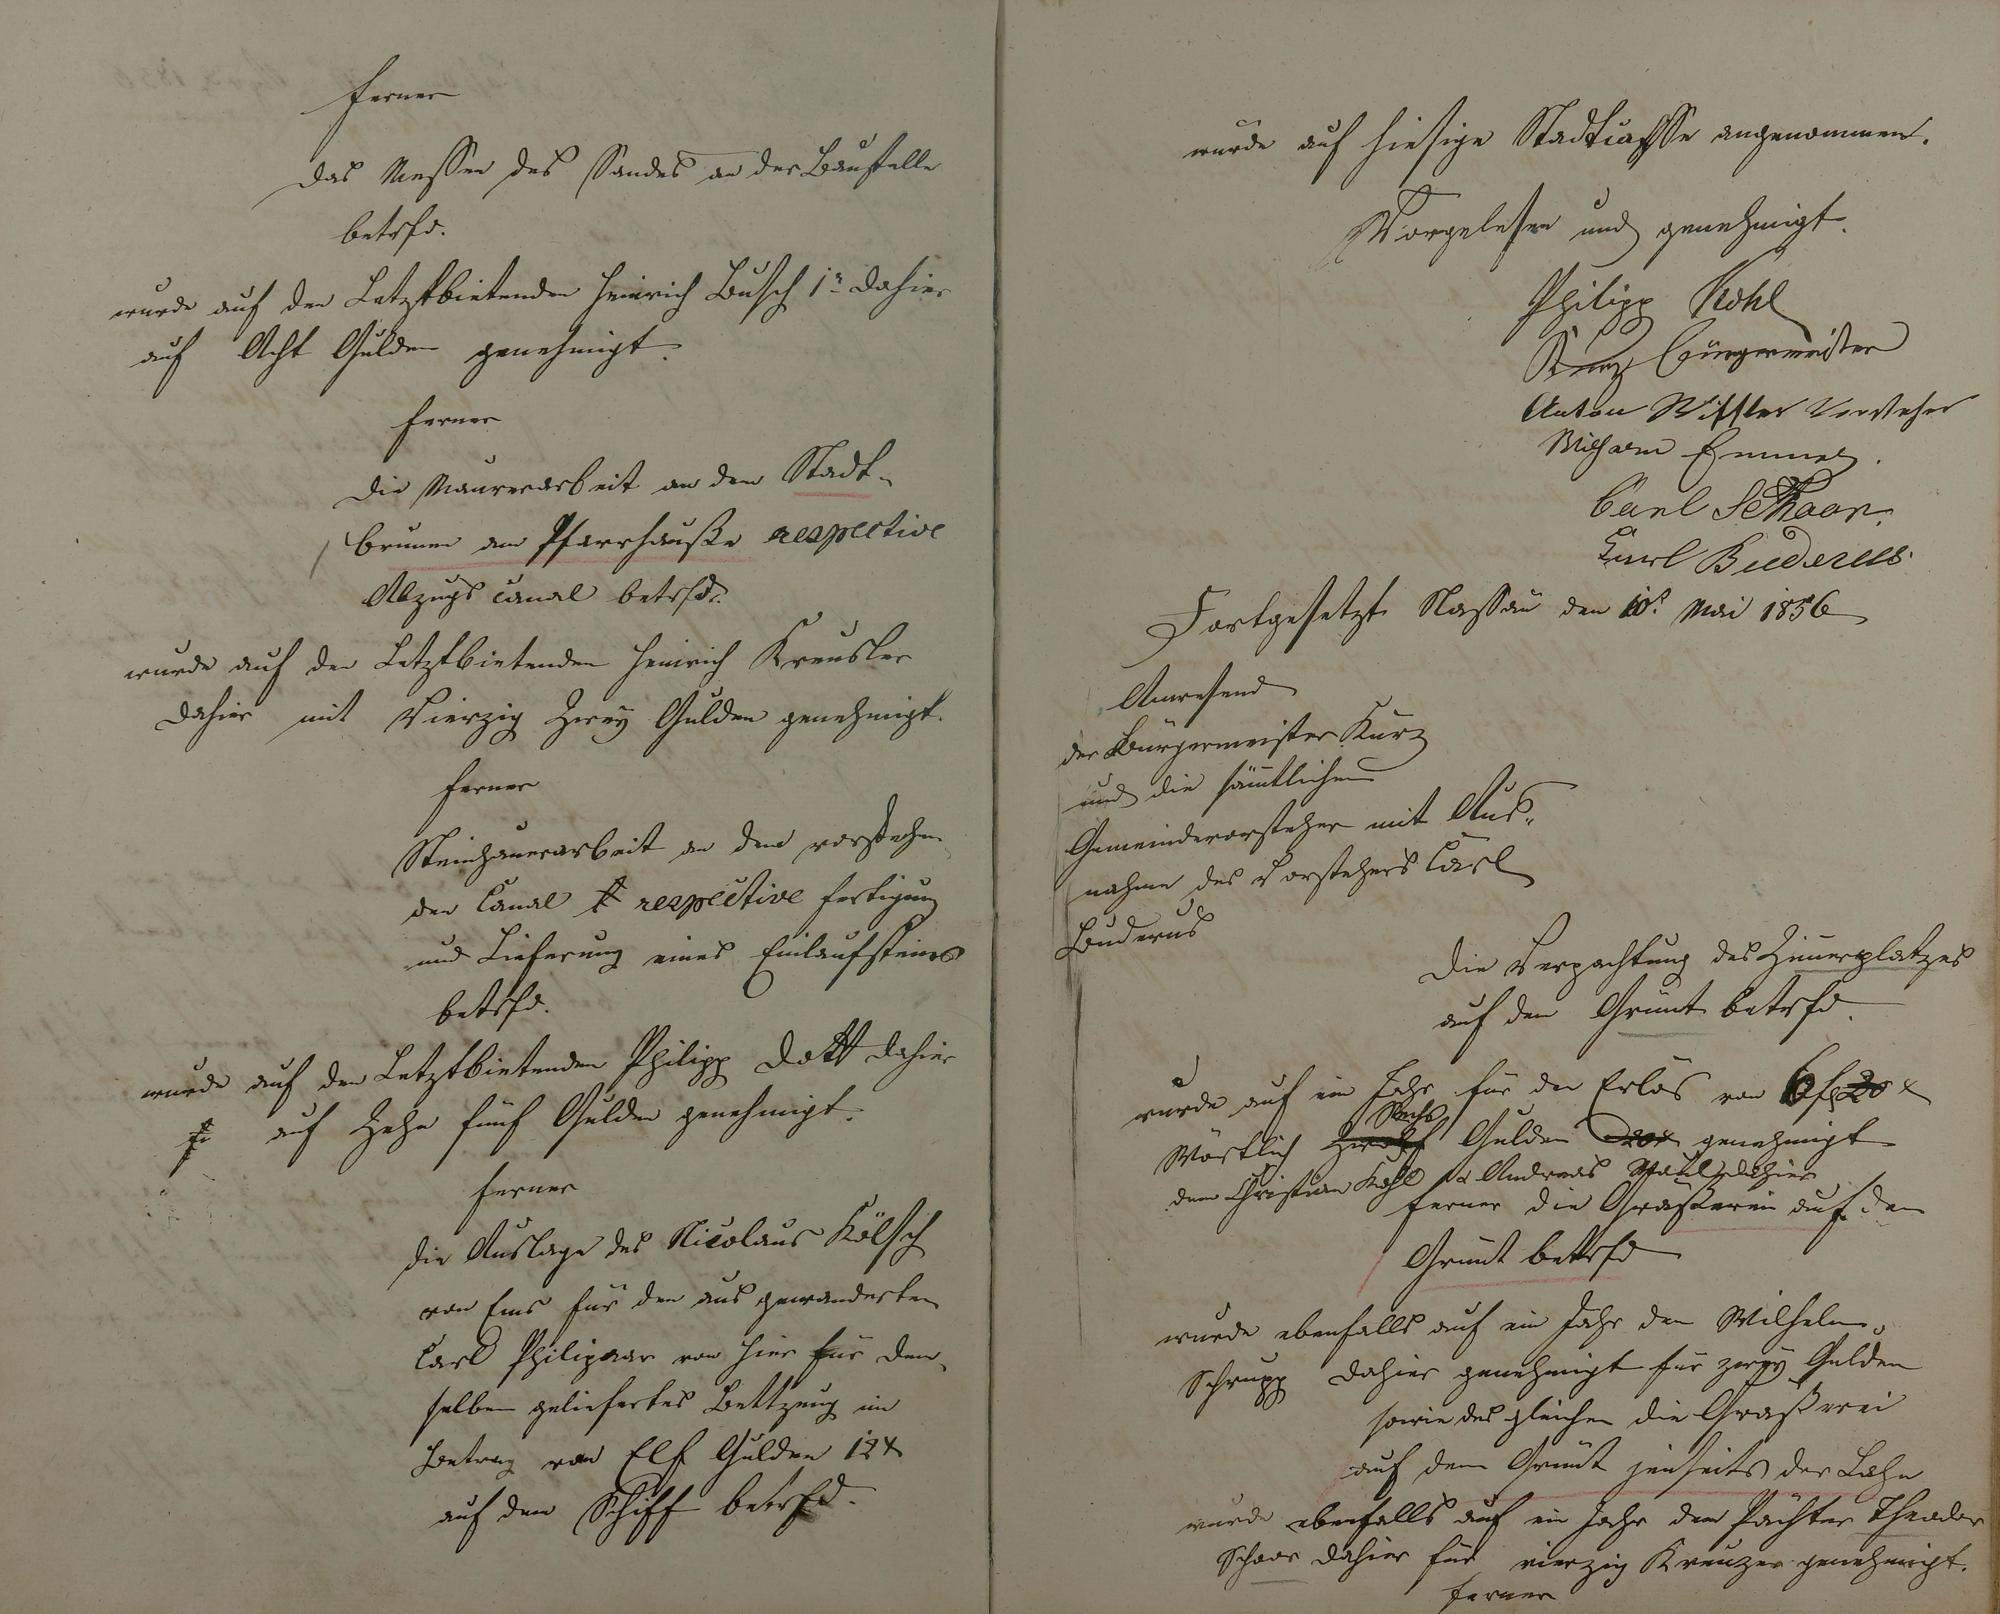 ferner
das Messen des Sandes an der Baustelle
betrfd.
wurde auf den Letztbietenden Heinrich Busch 1r dahier
auf Acht Gulden genehmigt.
ferner
die Maurerarbeit an dem Stadt-
brunen am Pfarrhauße respective
Abzugs canal betrfd.
wurde auf den Letztbietenden Heinrich Kreusler
dahier mit Vierzig Zwey Gulden genehmigt.
ferner
Steinhauerarbeit an dem vorstehen-
den Canal respective fertigung
und Lieferung eines Einlaufsteins
betrfd.
wurde auf den Letztbietenden Philipp Dott dahier
auf Zehn fünf Gulden genehmigt.
ferner
die Auslage des Nicolaus Kölsch
von Ems für den aus gewanderten
Carl Philipaar von hier für den-
selben geliefertes Bettzeug im
Betrag von Elf Gulden 12 x
auf dem Schiff betrfd.
wurde auf hiesige Stadtcasse angenommen.
Vorgelesen und genehmigt.
Philipp Kohl
Kurz Bürgermeister
Anton Vorsteher
Wilhelm Emmel.
Carl Schaar.
Carl Buderus.
Fortgesetzt Nassau den 10t Mai 1856
Anwesend
der Bürgermeister Kurz
und die sämtlichen
Gemeindevorsteher mit Aus-
nahme des Vorstehers Carl
Buderus
Die Verpachtung des Zimerplatzes
auf den Grünt betrfd.
wurde auf ein Jahr für den Erlös von 6 f 20 x
Sechs
Wörtlich Zwölf Gulden 20 x genehmigt
dem Christian Kohl u Andreas Paul dahier
ferner die Graßerei auf den
Grünt betrfd
wurde ebenfalls auf ein Jahr den Wilhelm
Schrupp dahier genehmigt für zwey Gulden
sowie des gleichen die Graßerei
auf dem Grünt jenseits der Lahn
wurde ebenfalls auf ein Jahr dem Pächter Theodor
Schaar dahier für vierzig Kreuzer genehmigt.
ferner